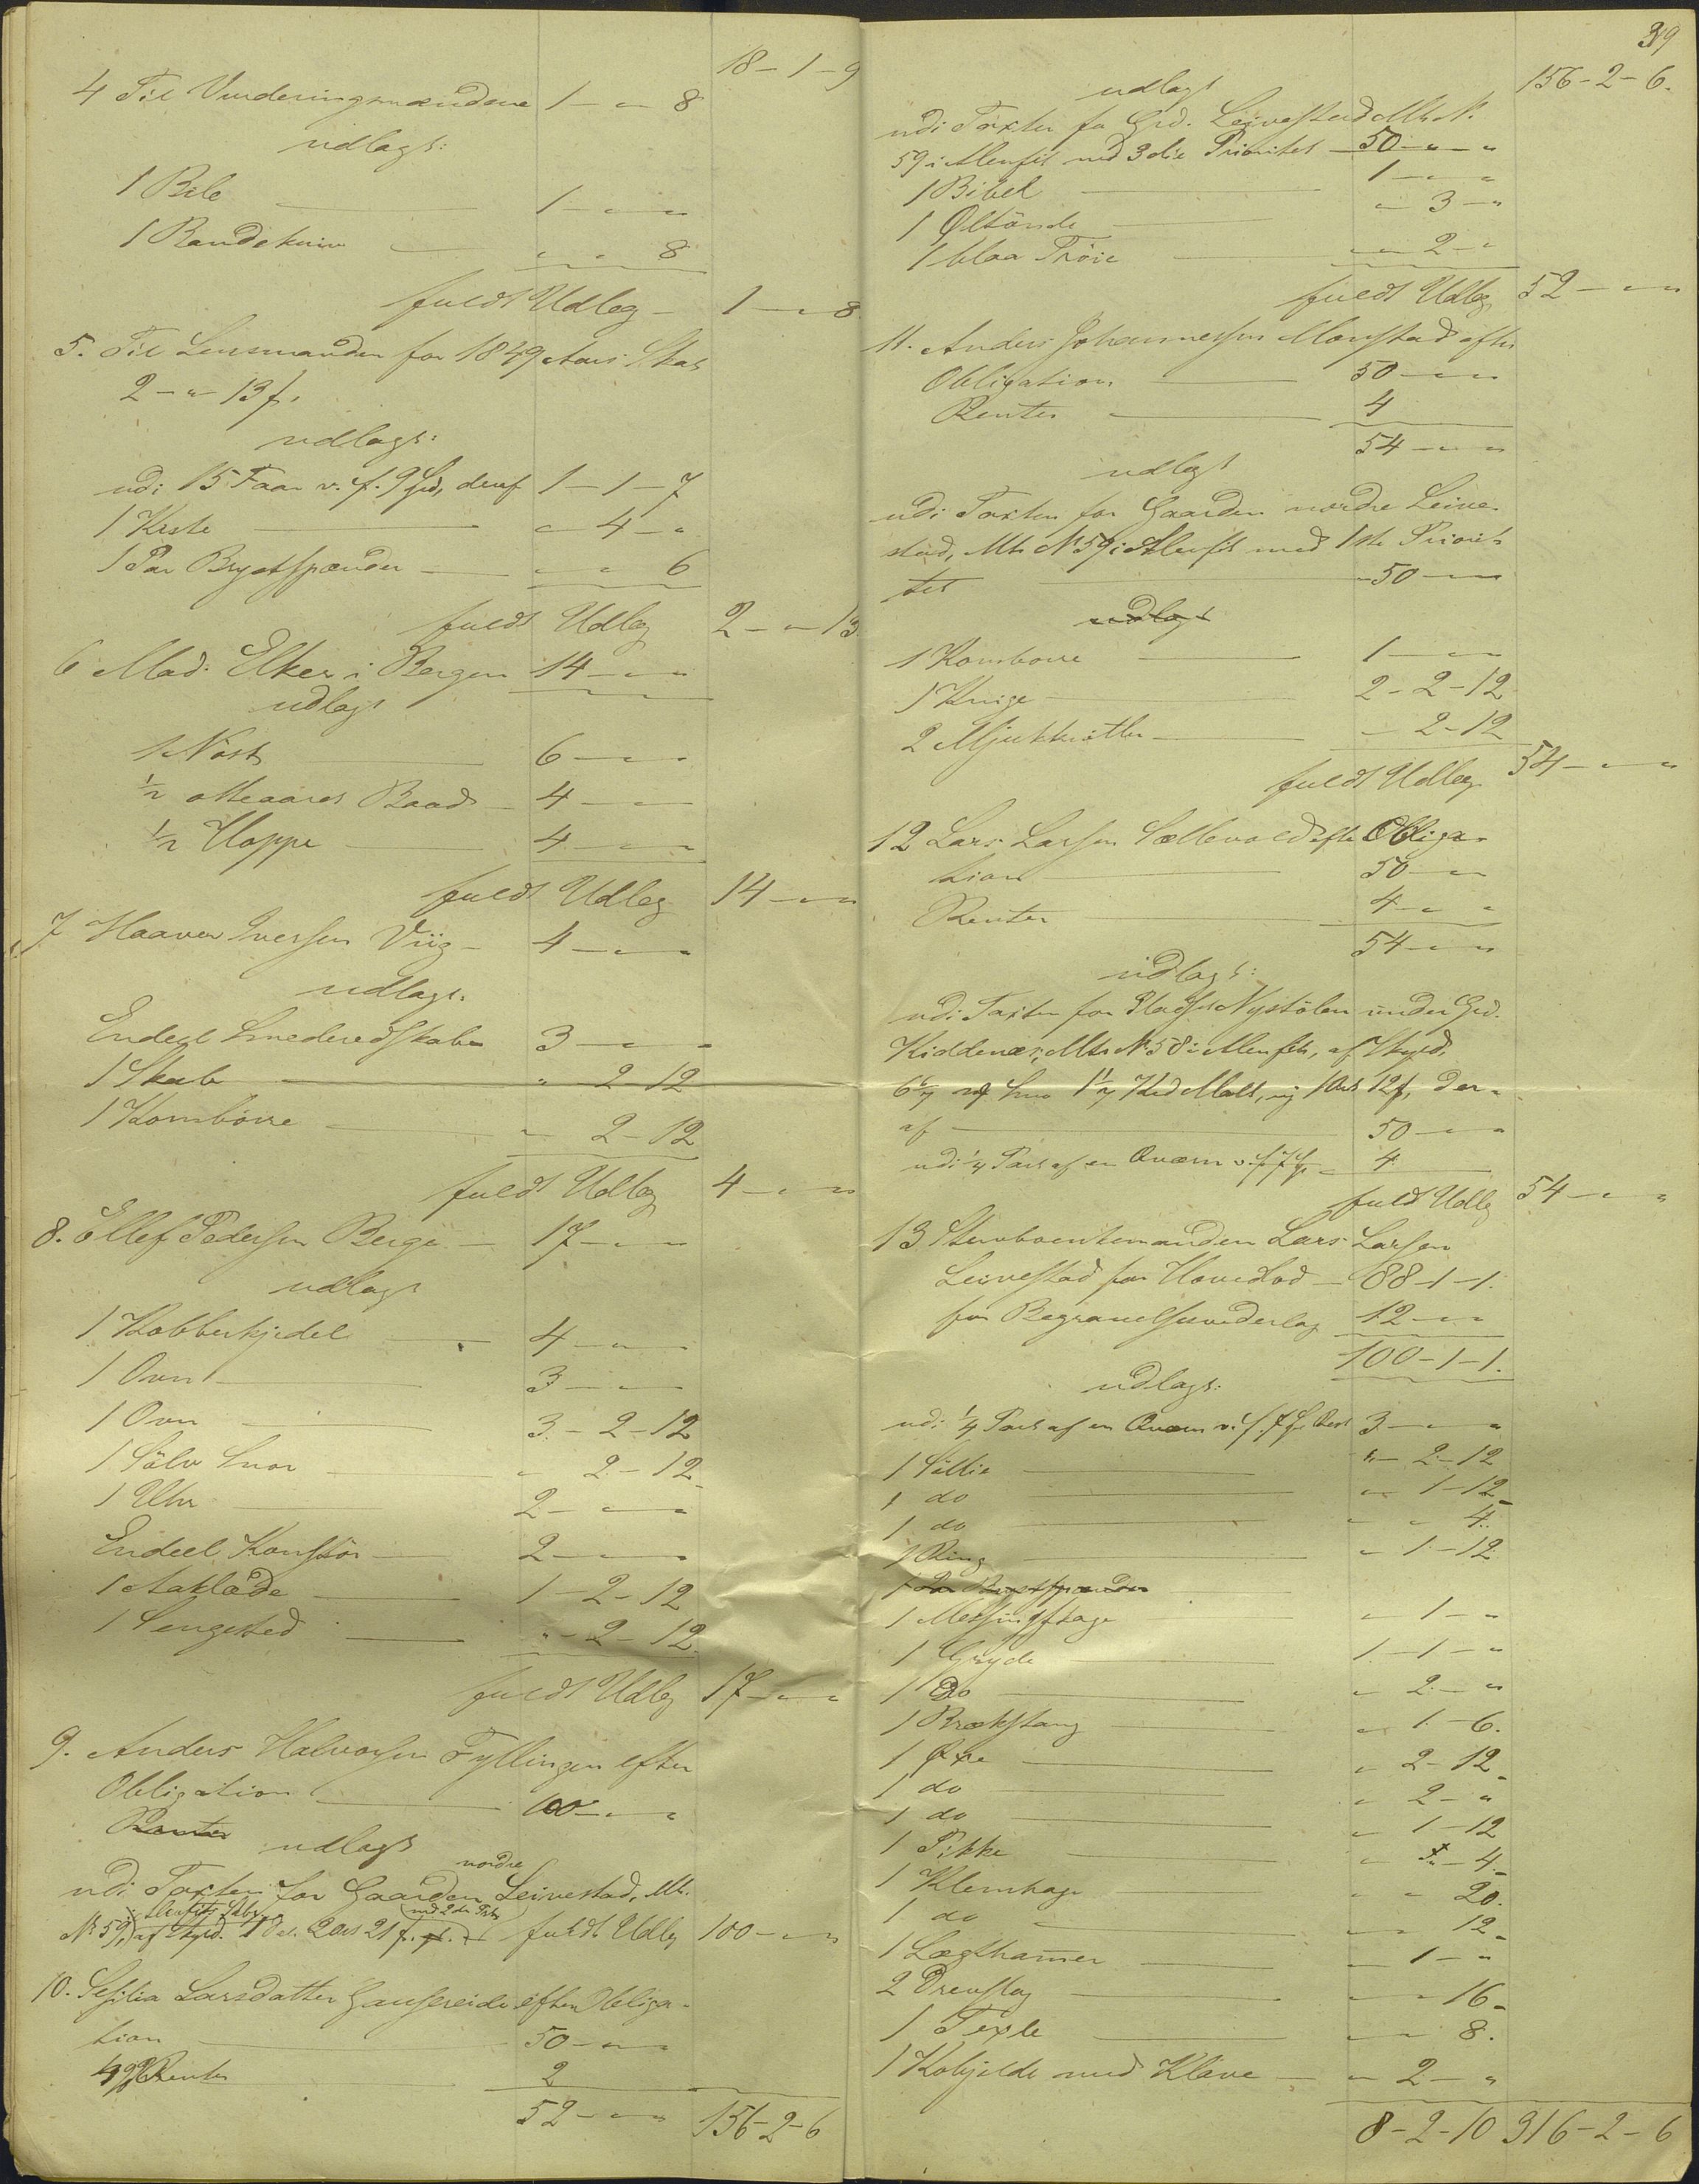 18 - 1 - 9
4 Til Vurderingsmændene 1 - " - 8
udlagt:
1 Bile 1 - " - "
1 Bandekniv " - " - 8
fuldt Udlæg - 1 - " - 8
5. Til Lensmanden for 1849 Aars Skat
2 - " - 13 f.
udlagt:
udi 15 Faar v. f. 9 Spd, deraf 1 - 1 - 7
1 Kiste " - 4 - "
1 Par Brystspænder " - " - 6
fuldt Udlæg 2 - " - 13
6 Mad: Elker i Bergen 14 - " - "
udlagt
1 Nøst 6 - " - "
1/2 otteaares Baad 4 - " - "
1/2 Hoppe 4 - " - "
fuldt Udlæg 14 - " - "
7 Haaver Iversen Viig 4 - " - "
udlagt.
Endeel Smederedskaber 3 - " - "
1 Skab " - 2 - 12
1 Kornbørre " - 2 - 12
fuldt Udlæg 4 - " - "
8. Ellef Pedersen Berge 17 - " - "
udlagt
1 Kobberkjedel 4 - " - "
1 Ovn 3 - " - "
1 Ovn 3 - 2 - 12
1 Sölv Snor " - 2 - 12
1 Uhr 2 - " - "
Endeel 2 - " - "
1 Aaklæde 1 - 2 - 12
1 Sengested " - 2 - 12
fuldt Udlæg 17 - " - "
9. Anders Halvorsen Fyllingen efter
Obligation 100 - " - "
Renter udlagt
nordre
udi Taxten for Gaarden Leivestad, Mt.
med 2den Prts
No 59, af Skyld. 1 Dal. 2 Ort 21 f. fuldt Udlæg 100 - " - "
10. Sesilia Larsdatter Gausereide efter Obliga-
tion 50 - " - "
Renter 2
52 - " - " 156 - 2 - 6
39
156 - 2 - 6.
udlagt
udi Taxten for Grd. Leivestad Mt. N.
59 i Alenfit med 3die Prioritet 50 - " - "
1 Bibel 1 - " - "
1 Øltønde " - 3 - "
1 blaa Trøie " - 2 - "
fuldt Udlæg 52 - " - "
11. Anders Johannessen Monstad efter
Obligation 50 - " - "
Renter 4
54 - " - "
udlagt
udi Taxten for Gaarden nordre Leive-
stad, Mt. No 59 i Alenfit med 1ste Priorit
tet 50 - " - "
udlagt
1 Kornbørre 1 - " - "
1 Kvige 2 - 2 - 12
2 " - 2 - 12
fuldt Udlæg 54 - " - "
12 Lars Larsen Sellevold efter Obliga-
tion 50 - " - "
Renter 4 - " - "
54 - " - "
udlagt:
udi Taxten for Pladsen Nystölen under Grd.
Kiddenæs, Mt. No 58 i Alenfit, af Skyld.
Smør Malt, ny 1 Ort 12 f, der-
af 50 - " - "
udi 1/4 Part af en Qværn v. f. 7 Sp. 4
fuldt Udlæg 54 - " - "
13 Stervboenkemanden Lars Larsen
Leivestad for Hovedlod 88 - 1 - 1.
for Begravelsesvederlag 12 - " - "
100 - 1 - 1.
udlagt:
udi 1/4 Part af en Qværn v. f. 7 Sp. Rest 3 - " - "
1 Söllie " - 2 - 12
1 do " - 1 - 12
1 do " - " - 4.
1 Ring " - 1 - 12
1 Par Brystspænder
1 Messingstage " - 1 - "
1 Gryde 1 - 1 - "
1 Do " - 2 - "
1 Brækstang " - 1 - 6.
1 Øxe " - 2 - 12
1 do " - 2 - "
1 do " - 1 - 12
1 Pikke " - " - 4
1 Klemhage " - " - 20.
1 do " - " - 12
1 Lægthamer " - 1 - "
2 " - " - 16
1 Texle " - " - 8.
1 Kobjelde med Klave " - 2 - "
8 - 2 - 10 316 - 2 - 6